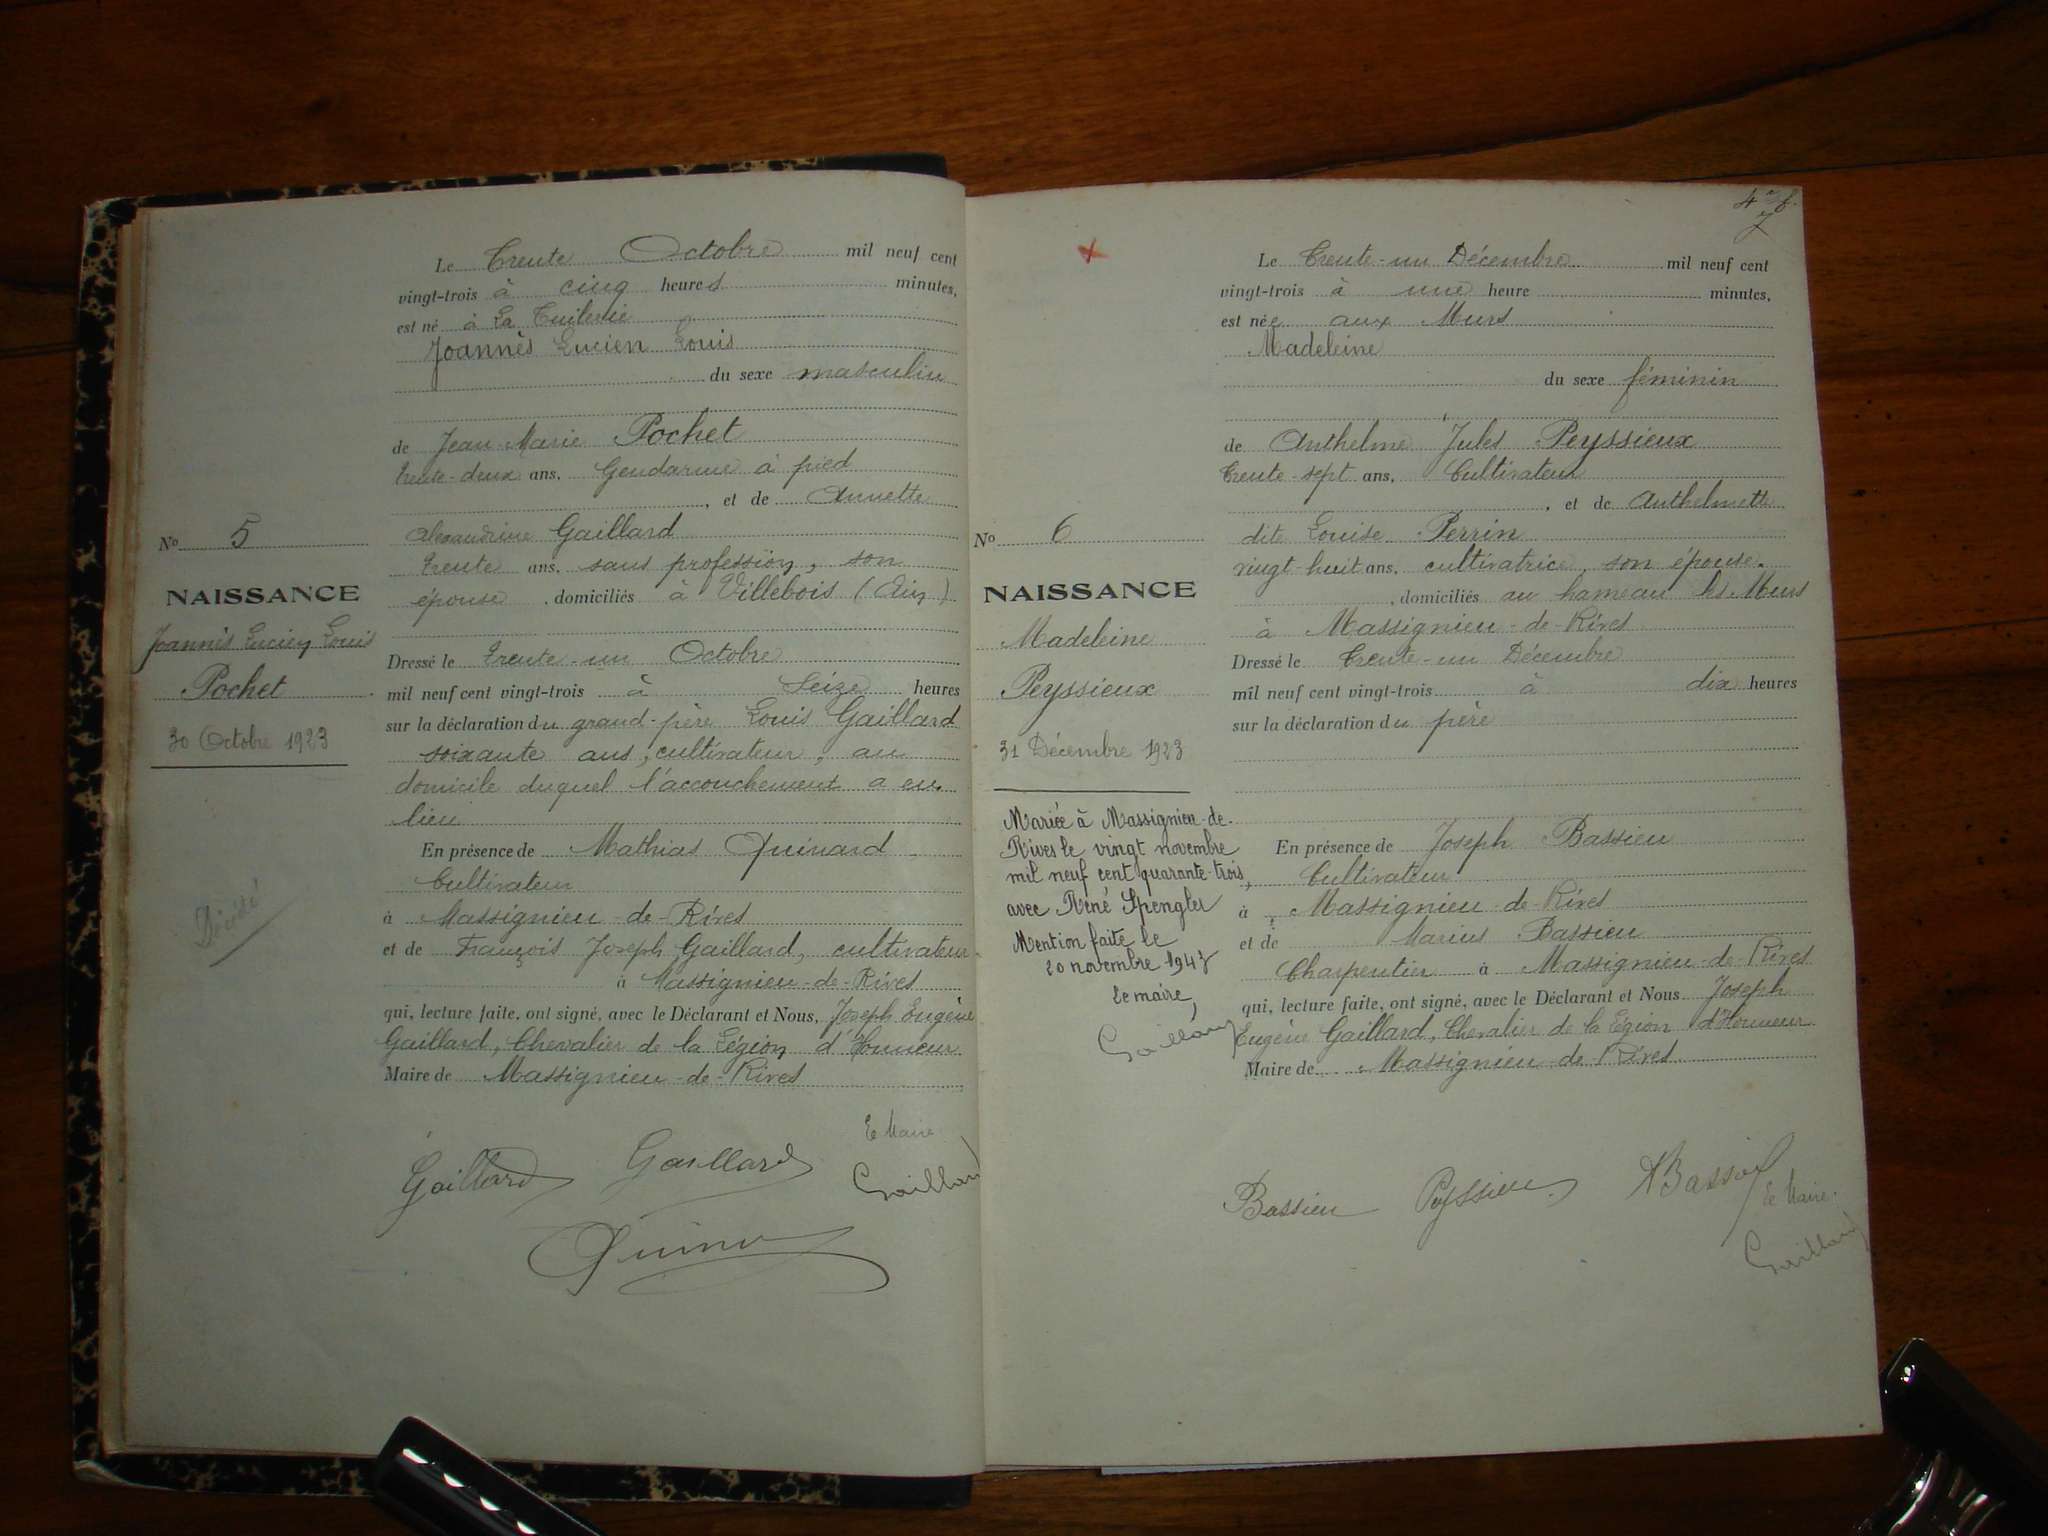 Le Trente Octobre mil neuf cent
vingt-trois à cinq heures minutes,
est né à La Tuilerie
Joannès Lucien Louis
du sexe masculin
de Jean-Marie Pochet
trente-deux ans, Gendarme à pied
, et de Annette
Alexandrine Gaillard
trente ans, sans profession, son
épouse, domiciliés à Villebois (Ain)
Dressé le trente-un Octobre
mil neuf cent vingt-trois à seize heures
sur la déclaration du grand-père Louis Gaillard
soixante ans, cultivateur, au
domicile duquel l'accouchement a eu
lieu
En présence de Mathias Quinard
Cultivateur
à Massignieu-de-Rives
et de François Joseph Gaillard, cultivateur
à Massignieu-de-Rives
qui, lecture faite, ont signé, avec le Déclarant et Nous, Joseph Eugène
Gaillard, Chevalier de la Légion d'Honneur
Maire de Massignieu-de-Rives
Le Maire
Gaillard Gaillard Gaillard
Nº 5
NAISSANCE
Joannès Lucien Louis
Pochet
30 Octobre 1923
Décédé
Le Trente-un Décembre mil neuf cent
vingt-trois à une heure minutes,
est née aux Murs
Madeleine
du sexe féminin
de Anthelme Jules Peyssieux
trente-sept ans, Cultivateur
, et de Anthelmette
dite Louise Perrin
vingt-huit ans, cultivatrice, son épouse.
, domiciliés au hameau les Murs
à Massignieu-de-Rives
Dressé le trente-un Décembre
mil neuf cent vingt-trois à dix heures
sur la déclaration du père
En présence de Joseph Bassieu
Cultivateur
à Massignieu-de-Rives
et de Marius Bassieu
Charpentier à Massignieu-de-Rives
qui, lecture faite, ont signé, avec le Déclarant et Nous Joseph
Eugène Gaillard, Chevalier de la Légion d'Honneur
Maire de Massignieu-de-Rives
Bassieu Peyssieux
Le Maire.
Gaillard
Nº 6
NAISSANCE
Madeleine
Peyssieux
31 Décembre 1923
Mariée à Massignieu-de-
Rives le vingt novembre
mil neuf cent quarante-trois,
avec René Spengler
Mention faite le
20 novembre 1943
le maire,
Gaillard